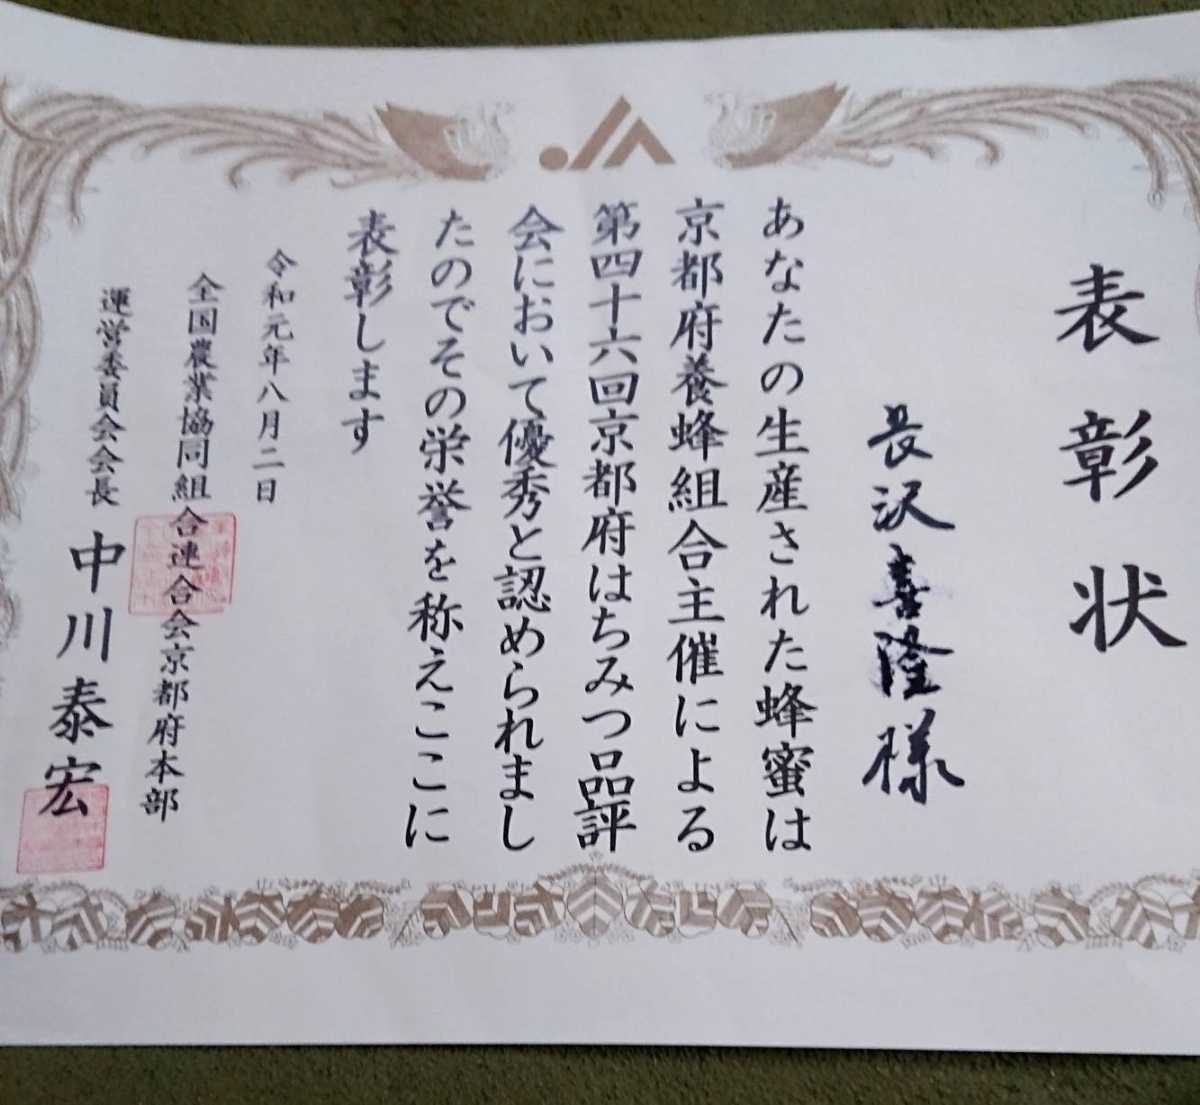 表彰状
長沢喜隆様
あなたの生産された蜂蜜は
京都府養蜂組合主催による
第四十六回京都府はちみつ品評
会において優秀と認められまし
たのでその栄誉を称えここに
表彰します
令和元年八月二日
全国農業協同組合連合会京都府本部
運営委員会会長 中川泰宏